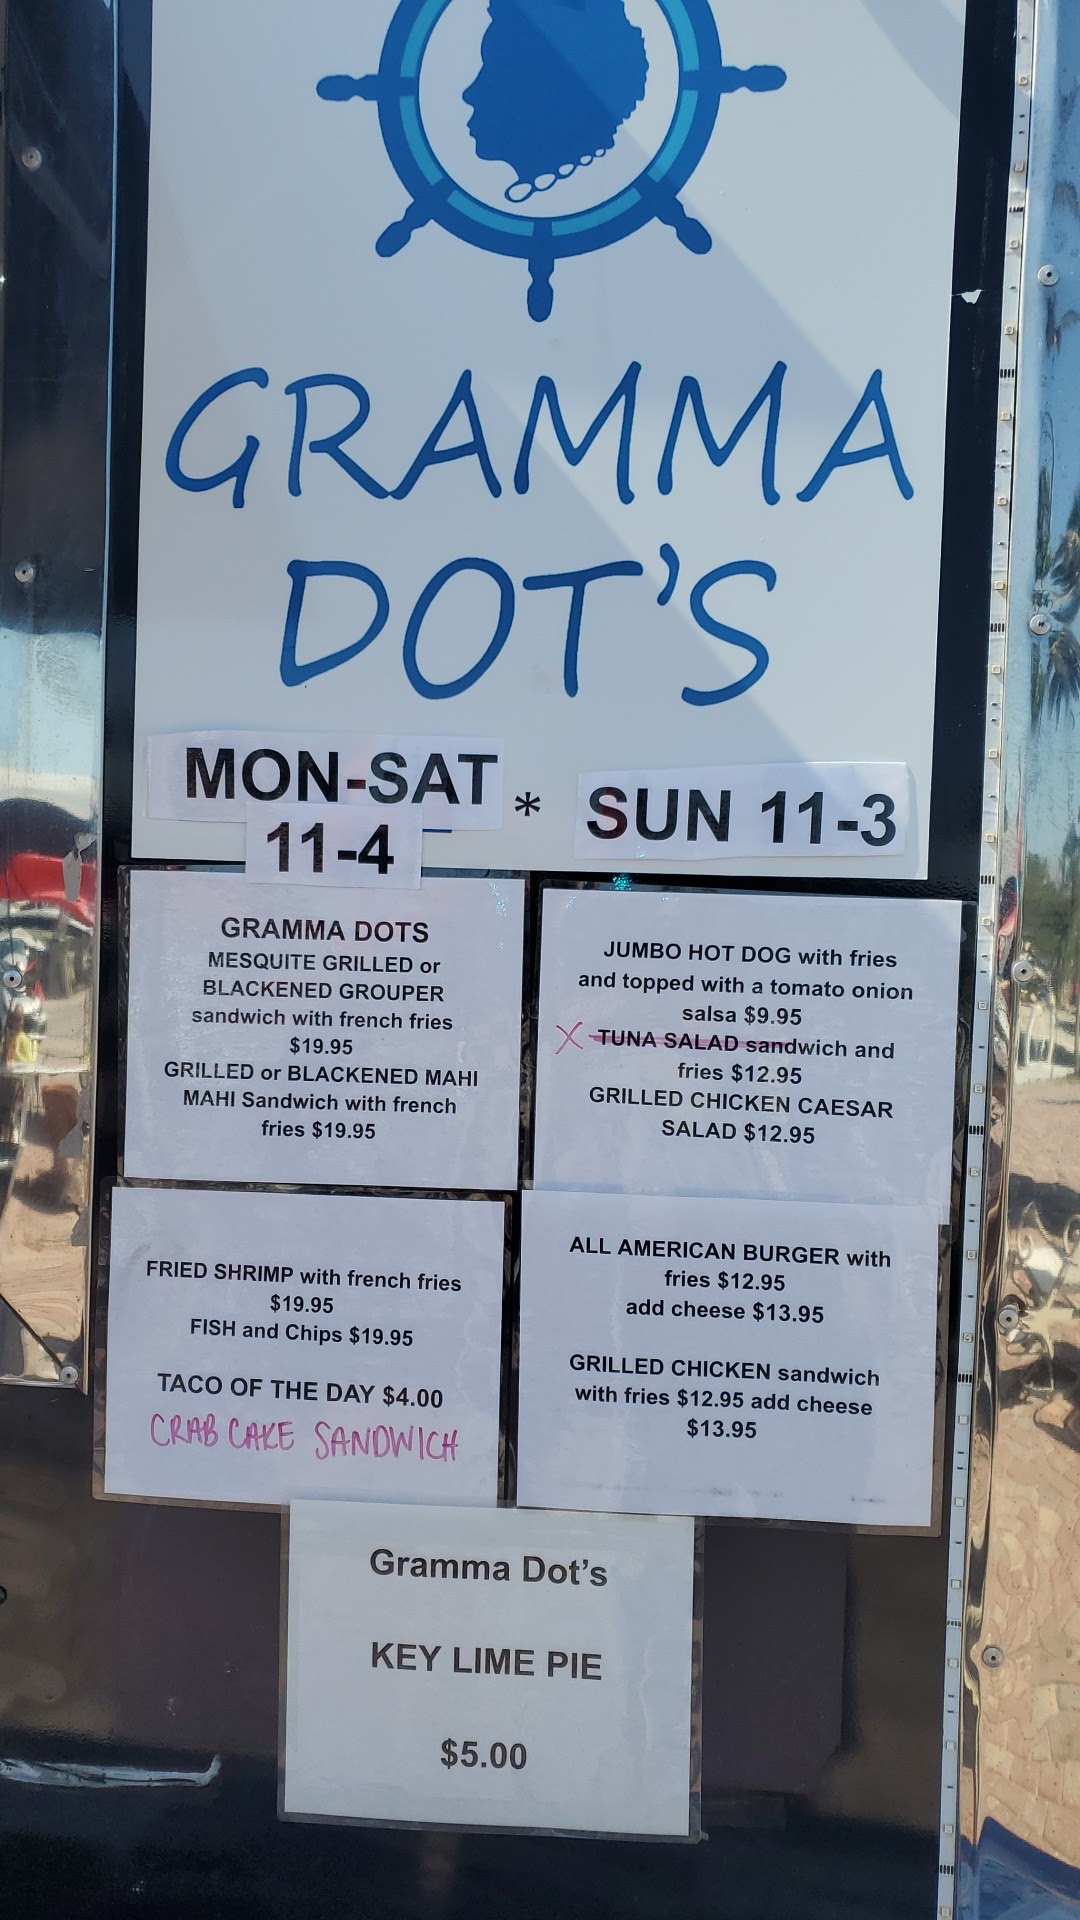 GRAMMA
DOT'S
MON-SAT
11-4
* SUN 11-3
GRAMMA DOTS
MESQUITE GRILLED or
BLACKENED GROUPER
sandwich with french fries
$19.95
GRILLED or BLACKENED MAHI
MAHI Sandwich with french
fries $19.95
JUMBO HOT DOG with fries
and topped with a tomato onion
salsa $9.95
X TUNA SALAD sandwich and
fries $12.95
GRILLED CHICKEN CAESAR
SALAD $12.95
FRIED SHRIMP with french fries
$19.95
FISH and Chips $19.95
TACO OF THE DAY $4.00
CRAB CAKE SANDWICH
ALL AMERICAN BURGER with
fries $12.95
add cheese $13.95
GRILLED CHICKEN sandwich
with fries $12.95 add cheese
$13.95
Gramma Dot's
KEY LIME PIE
$5.00